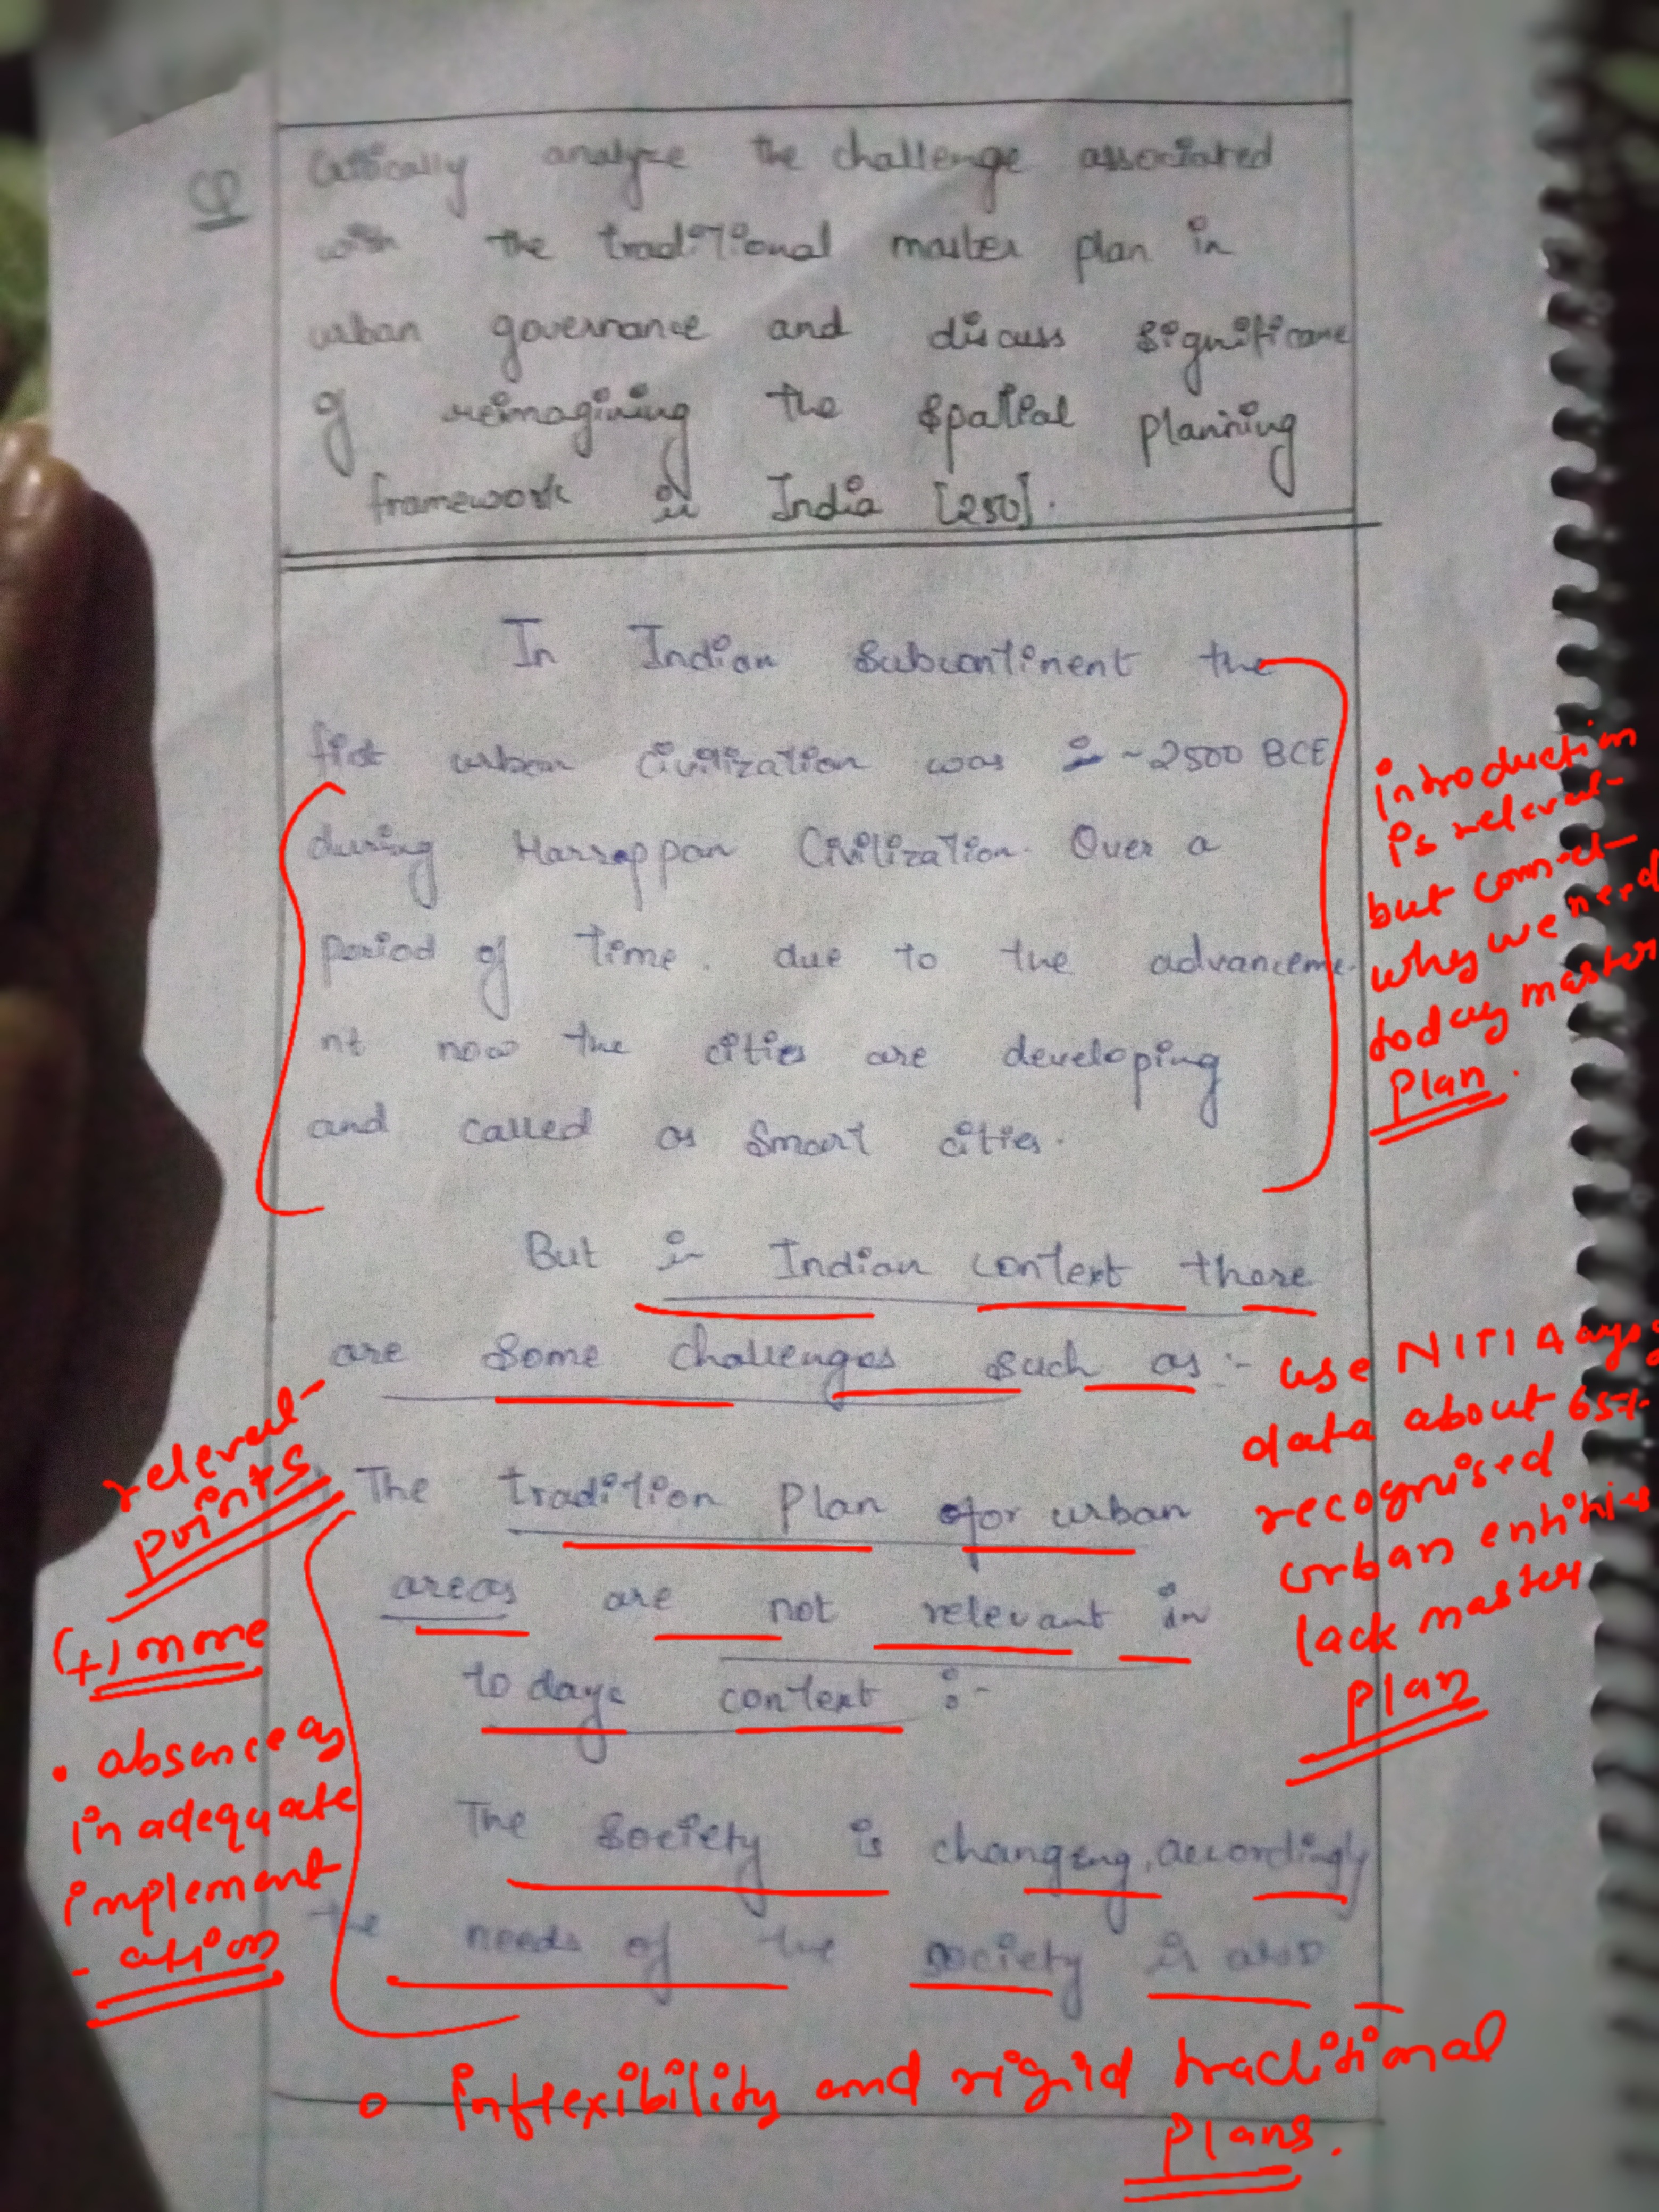 Q
Critically analyze the challenge associated
with the traditional master plan in
urban governance and discuss significane
of reimagining the spatial planning
framework in India [250].
In Indian Subcontinent the
fist urban Civilization was in ~2500 BCE
during Harrappan Civilization. Over a
period of time. due to the advanceme-
nt now the cities are developing
and called as Smart cities.
introduction
is relevant
but connect
why we need
today master
plan.
But in Indian context there
are some challenges such as :-
The tradition plan for urban
areas are not relevant in
todays context :-
The society is changing, accordingly
the needs of the society is also
use NITI Aayog
data about 65%
recognised
urban entities
lack master
plan
relevant
points
(+) more
• absence as
inadequate
implement
-ation
• inflexibility and rigid traditional
plans.